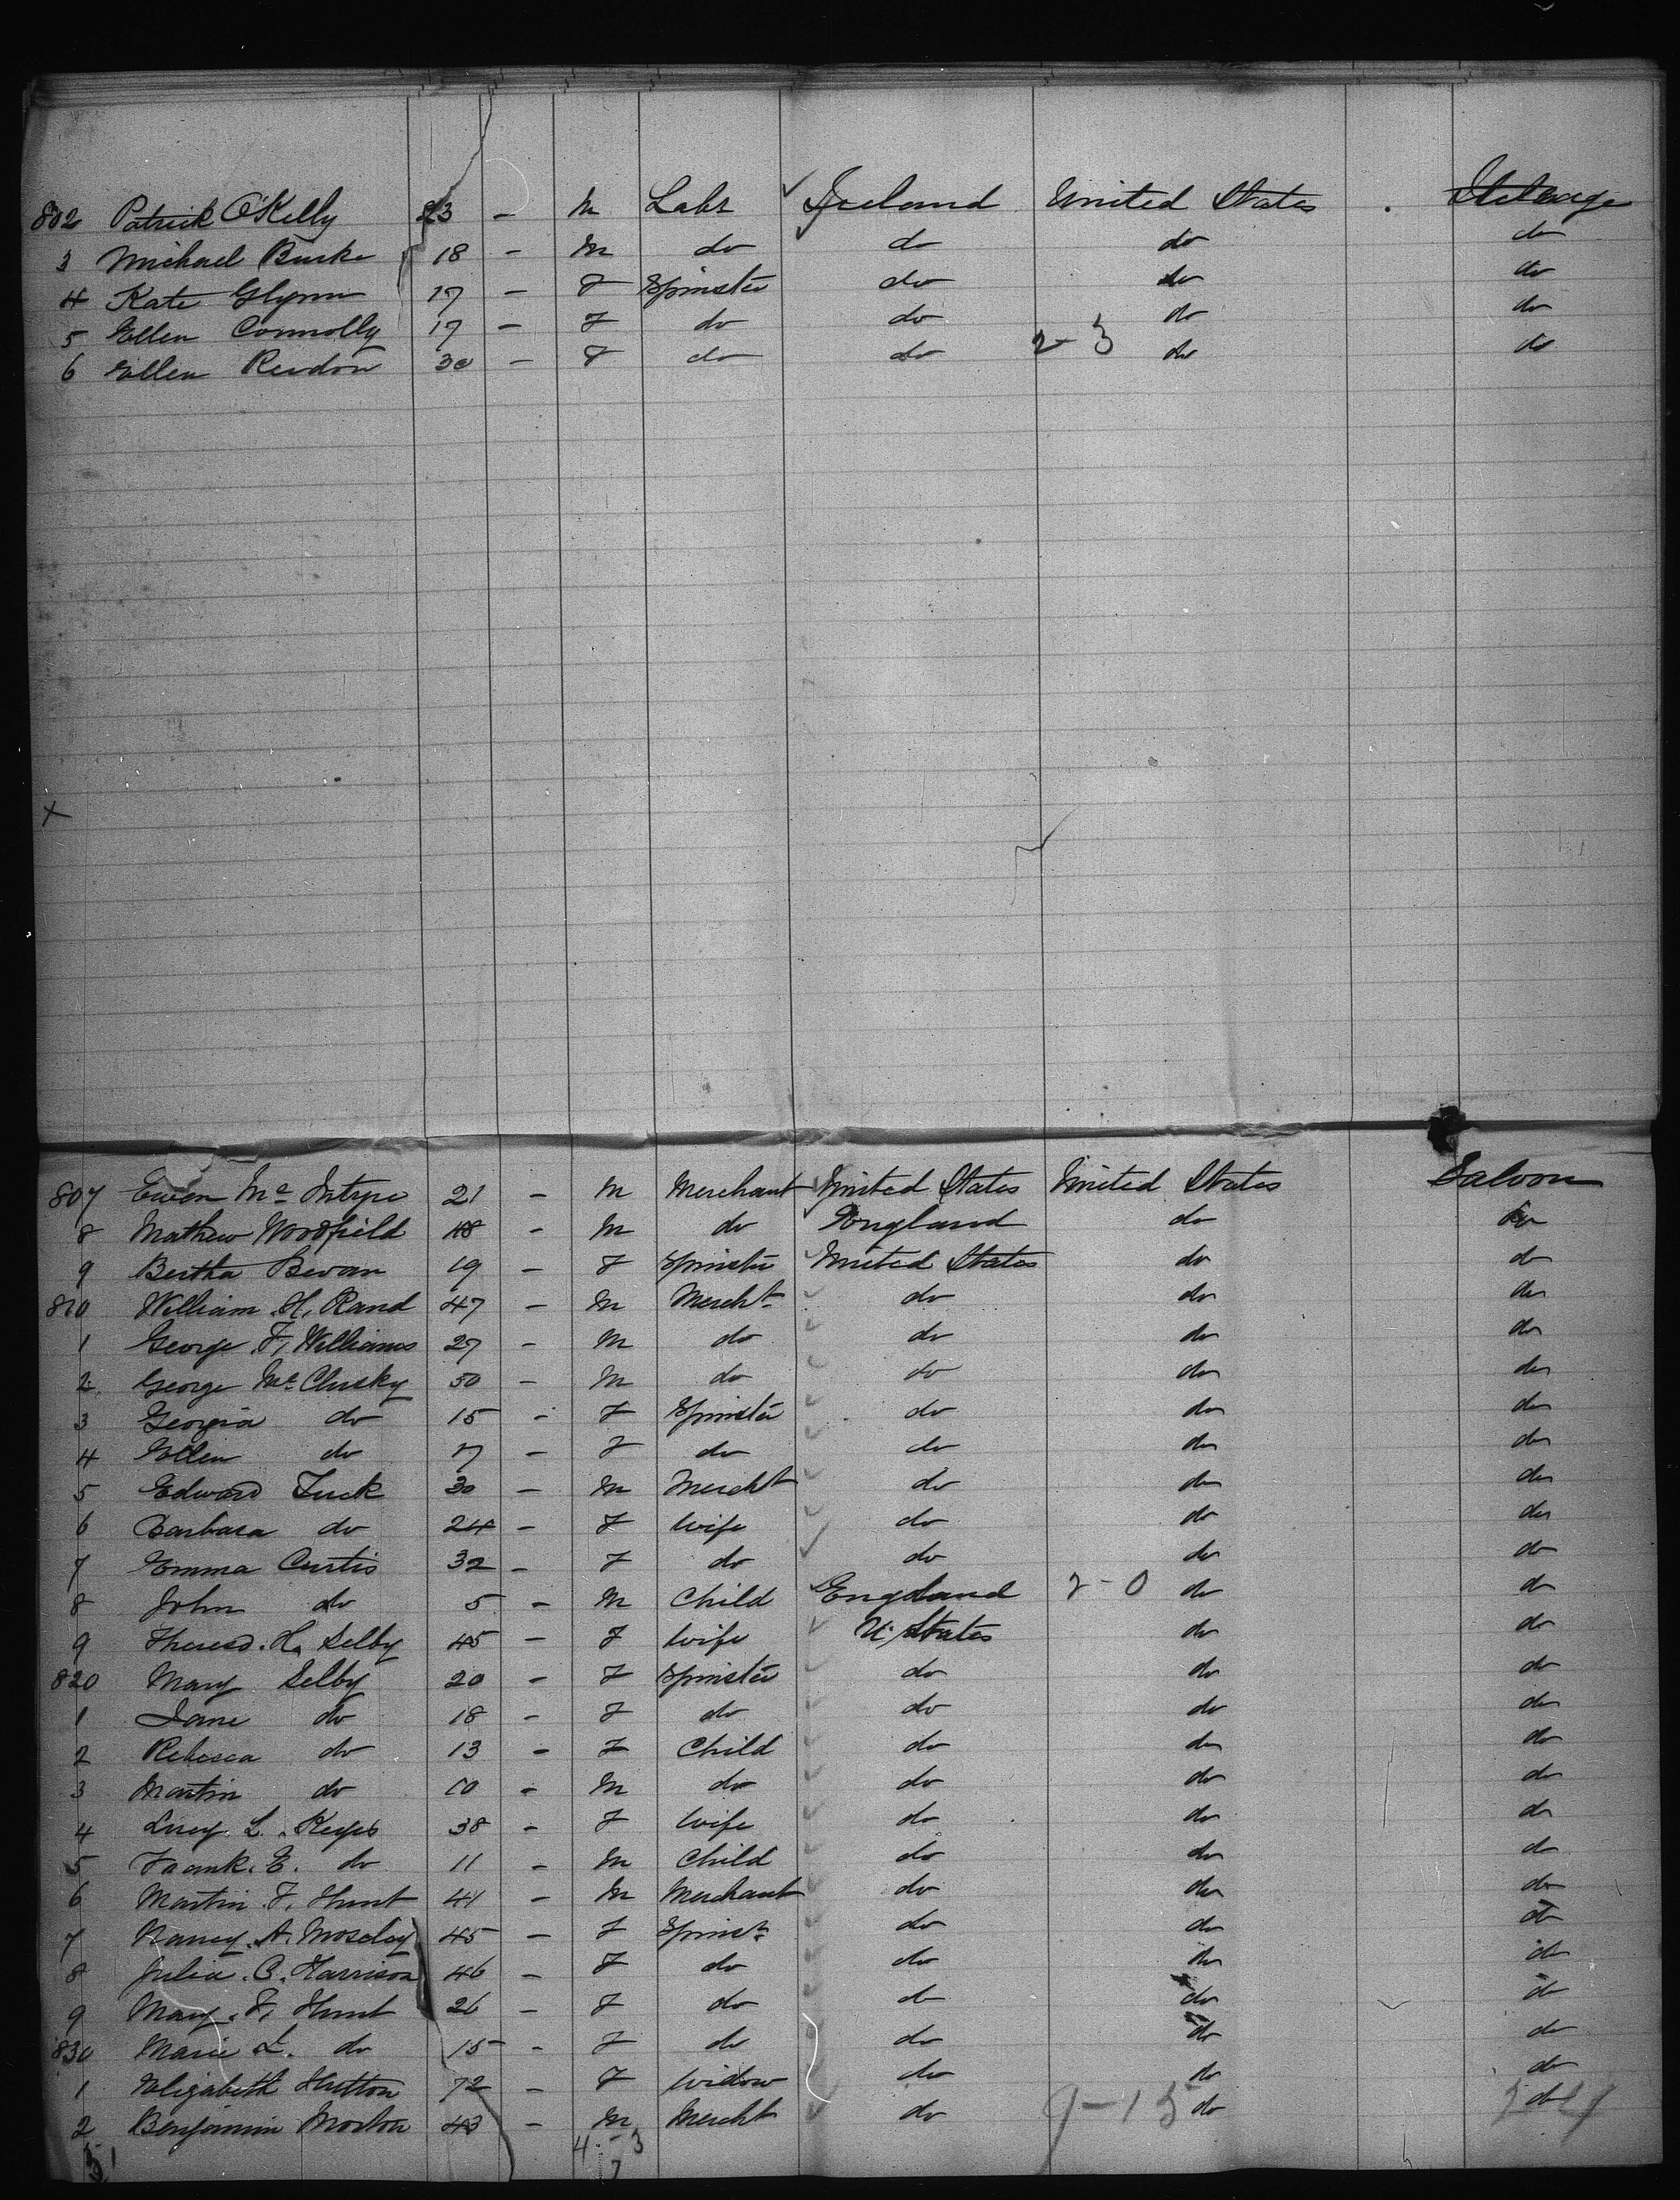 802 Patrick O'Kelly 23 - M Labr Ireland United States Steerage
3 Michael Burke 18 - M do do do do
4 Kate Glynn 17 - F Spinster do do do
5 Ellen Connolly 17 - F do do do do
6 Ellen Reidon 30 - F do do 2-3 do do
807 Ewen Mc Intyre 21 - M Merchant United States United States Saloon
8 Mathew Woodfield 48 - M do England do do
9 Bertha Bevan 19 - F Spinster United States do do
810 William H. Rand 47 - M Mercht do do do
1 George F. Williams 27 - M do do do do
2 George Mc Clusky 50 - M do do do do
3 Georgia do 15 - F Spinster do do do
4 Ellen do - F do do do do
5 Edward Tuck 30 - M Mercht do do do
6 Barbara do 24 - F Wife do do do
7 Emma Curtis 32 - F do do do do
8 John do 5 - M Child England 2-0 do do
9 H. Selby 45 - F Wife U. States do do
820 Mary Selby 20 - F Spinster do do do
1 Jane do 18 - F do do do do
2 Rebecca do 13 - F Child do do do
3 Martin do 10 - M do do do do
4 Lucy L. Keyes 38 - F Wife do do do
5 Frank. E. do 11 - M Child do do do
6 Martin F. Hunt 41 - M Merchant do do do
7 Nancy A. Moseley 45 - F Spinsr do do do
8 Julia C. Harrison 46 - F do do do do
9 Mary F. Hunt 26 - F do do do do
830 Marie L. do 15 - F do do do do
1 Elizabeth Hutton 72 - F Widow do do do
2 Benjamin Morton 43 - M Mercht do 9-15 do do
4-3
7